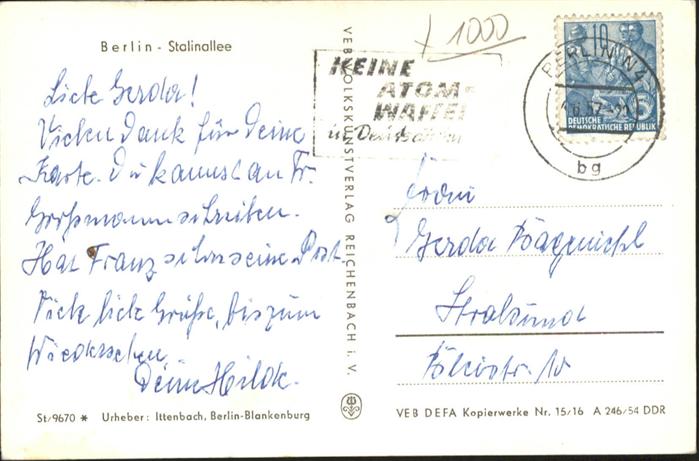 Berlin - Stalinallee
Liebe Gerda!
Vielen Dank für Deine
Karte. Du kannst an Fr.
Großmann schreiben.
Hat Franz schon seine Post.
Viele liebe Grüße, bis zum
Wiedersehen
Deine Hilde.
St/9670 * Urheber: Ittenbach, Berlin-Blankenburg
VEB VOLKSKUNSTVERLAG REICHENBACH i. V.
1000
KEINE
ATOM-
WAFFEN
in Deutschland
BERLIN N4
bg
10
DEUTSCHE
DEMOKRATISCHE REPUBLIK
Gerda
Stralsund
VEB DEFA Kopierwerke Nr. 15/16 A 246/54 DDR